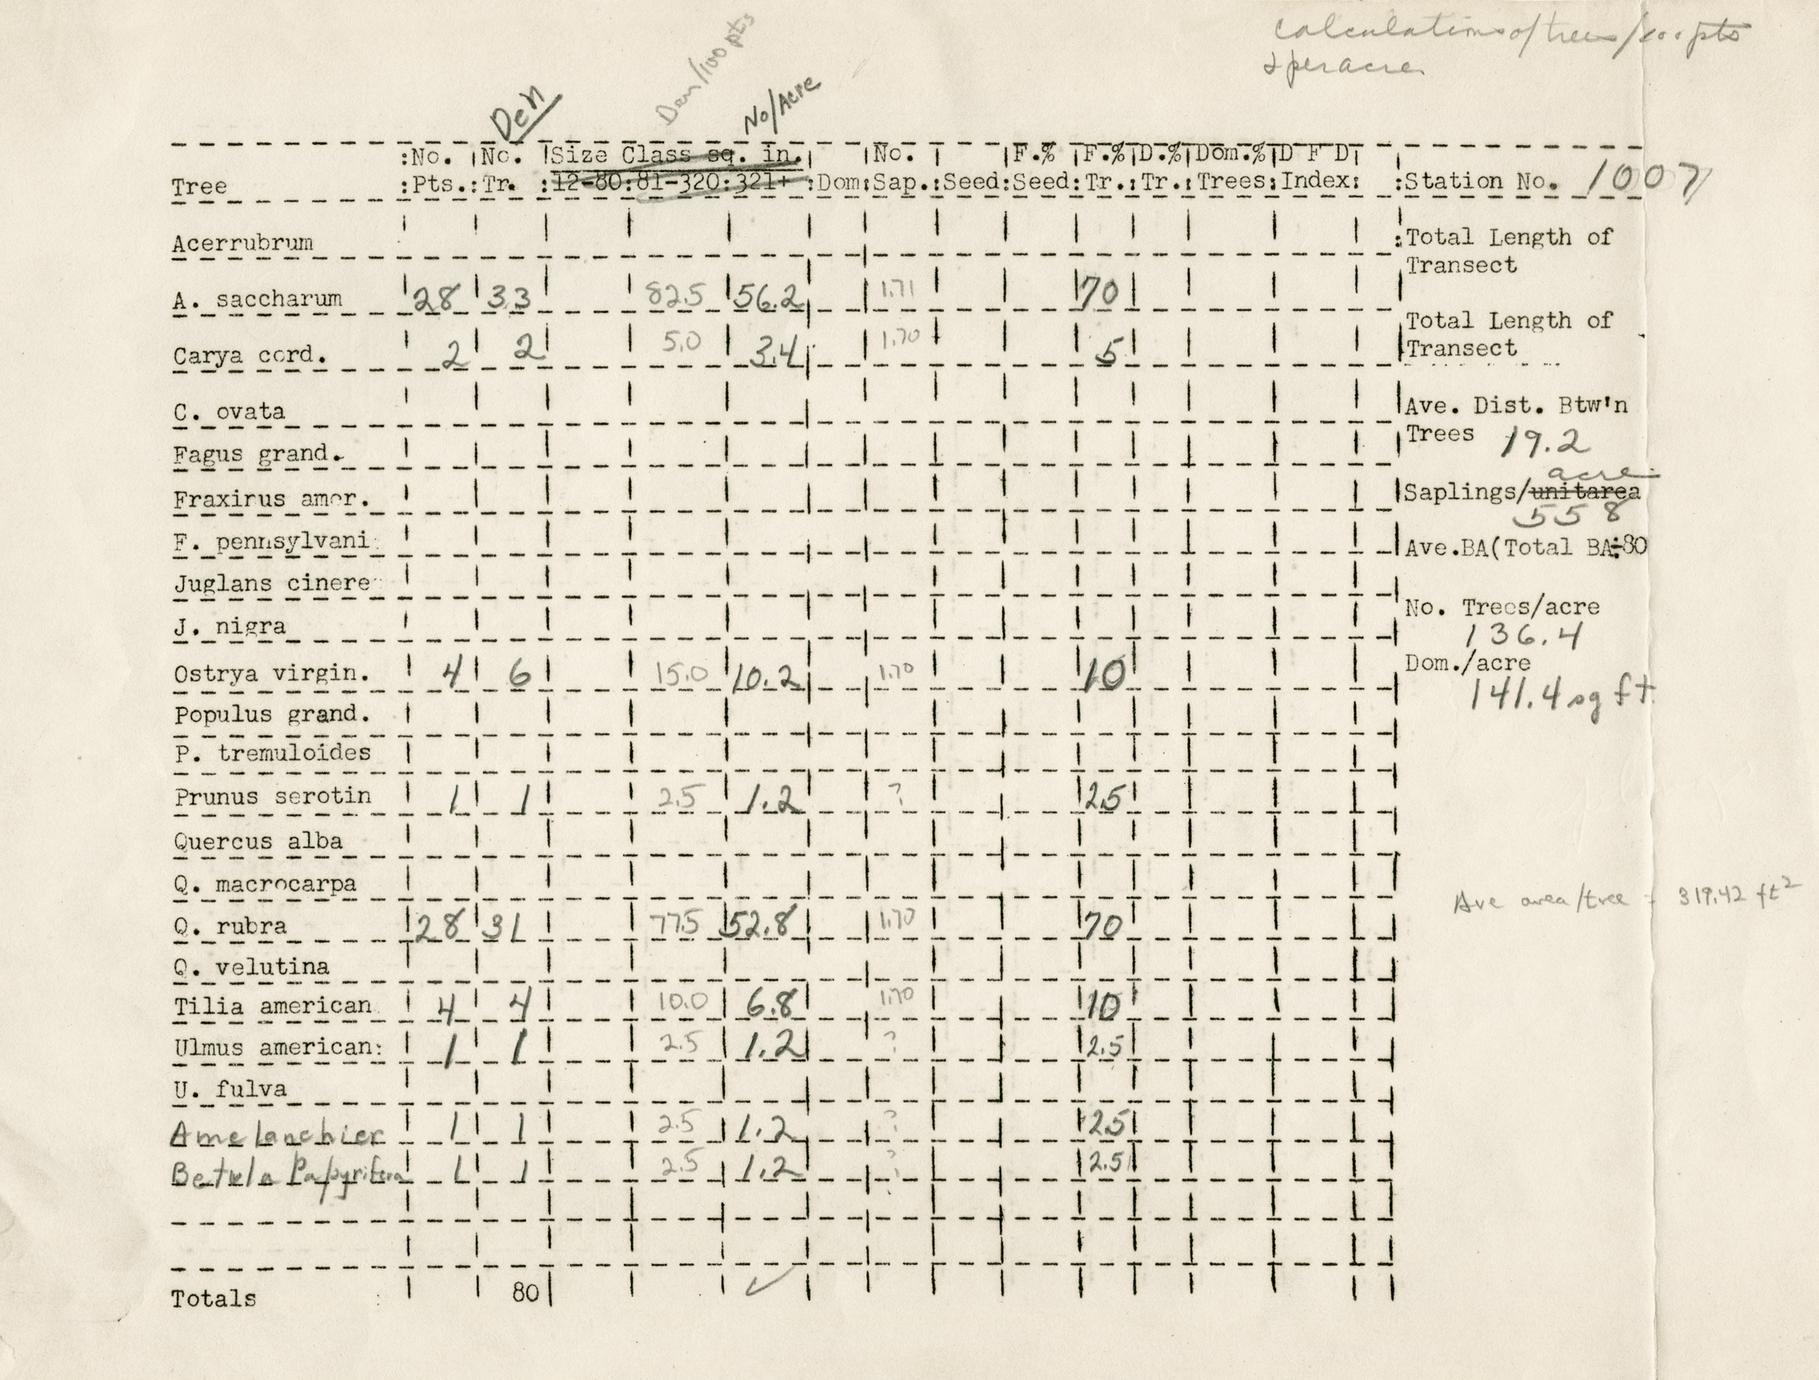 calculations of trees/100 pts
& per acre
Den
Den/100 pts
No/Acre
:No. No. Size Class sq. in. No. F.% F.% D.% Dom.% D F D
Tree :Pts.:Tr. :12-80:81-320:321+ :Dom:Sap.:Seed:Seed:Tr.:Tr.:Trees:Index: :Station No. 1007
Acerrubrum :Total Length of
Transect
A. saccharum 28 33 82.5 56.2 1.71 70
Total Length of
Carya cord. 2 2 5.0 3.4 1.70 5 Transect
C. ovata Ave. Dist. Btw'n
Trees 19.2
Fagus grand.
acre
Fraxirus amer. Saplings/unitarea
558
F. pennsylvani: Ave.BA(Total BA÷80
Juglans cinere
No. Trees/acre
J. nigra 136.4
Ostrya virgin. 4 6 15.0 10.2 1.70 10 Dom./acre
141.4 sq ft.
Populus grand.
P. tremuloides
Prunus serotin 1 1 2.5 1.2 ? 2.5
Quercus alba
Q. macrocarpa
Ave area/tree = 319.42 ft²
Q. rubra 28 31 77.5 52.8 1.70 70
Q. velutina
Tilia american 4 4 10.0 6.8 1.70 10
Ulmus american: 1 1 2.5 1.2 ? 2.5
U. fulva
Amelanchier 1 1 2.5 1.2 ? 2.5
Betula Papyrifera 1 1 2.5 1.2 ? 2.5
Totals : 80 ✓